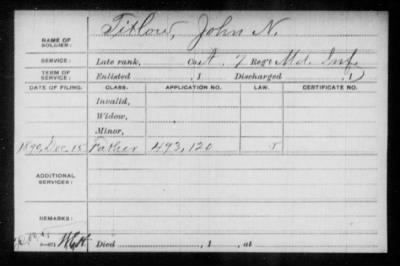 NAME OF SOLDIER: Titlow, John N.
SERVICE: Late rank, Co. A, 7 Reg't Md. Inf.
TERM OF SERVICE: Enlisted , 1 Discharged , 1
DATE OF FILING. CLASS. APPLICATION NO. LAW. CERTIFICATE NO.
Invalid,
Widow,
Minor,
1890, Dec. 15 Father 493,120
ADDITIONAL SERVICES:
REMARKS:
Died , 1 , at